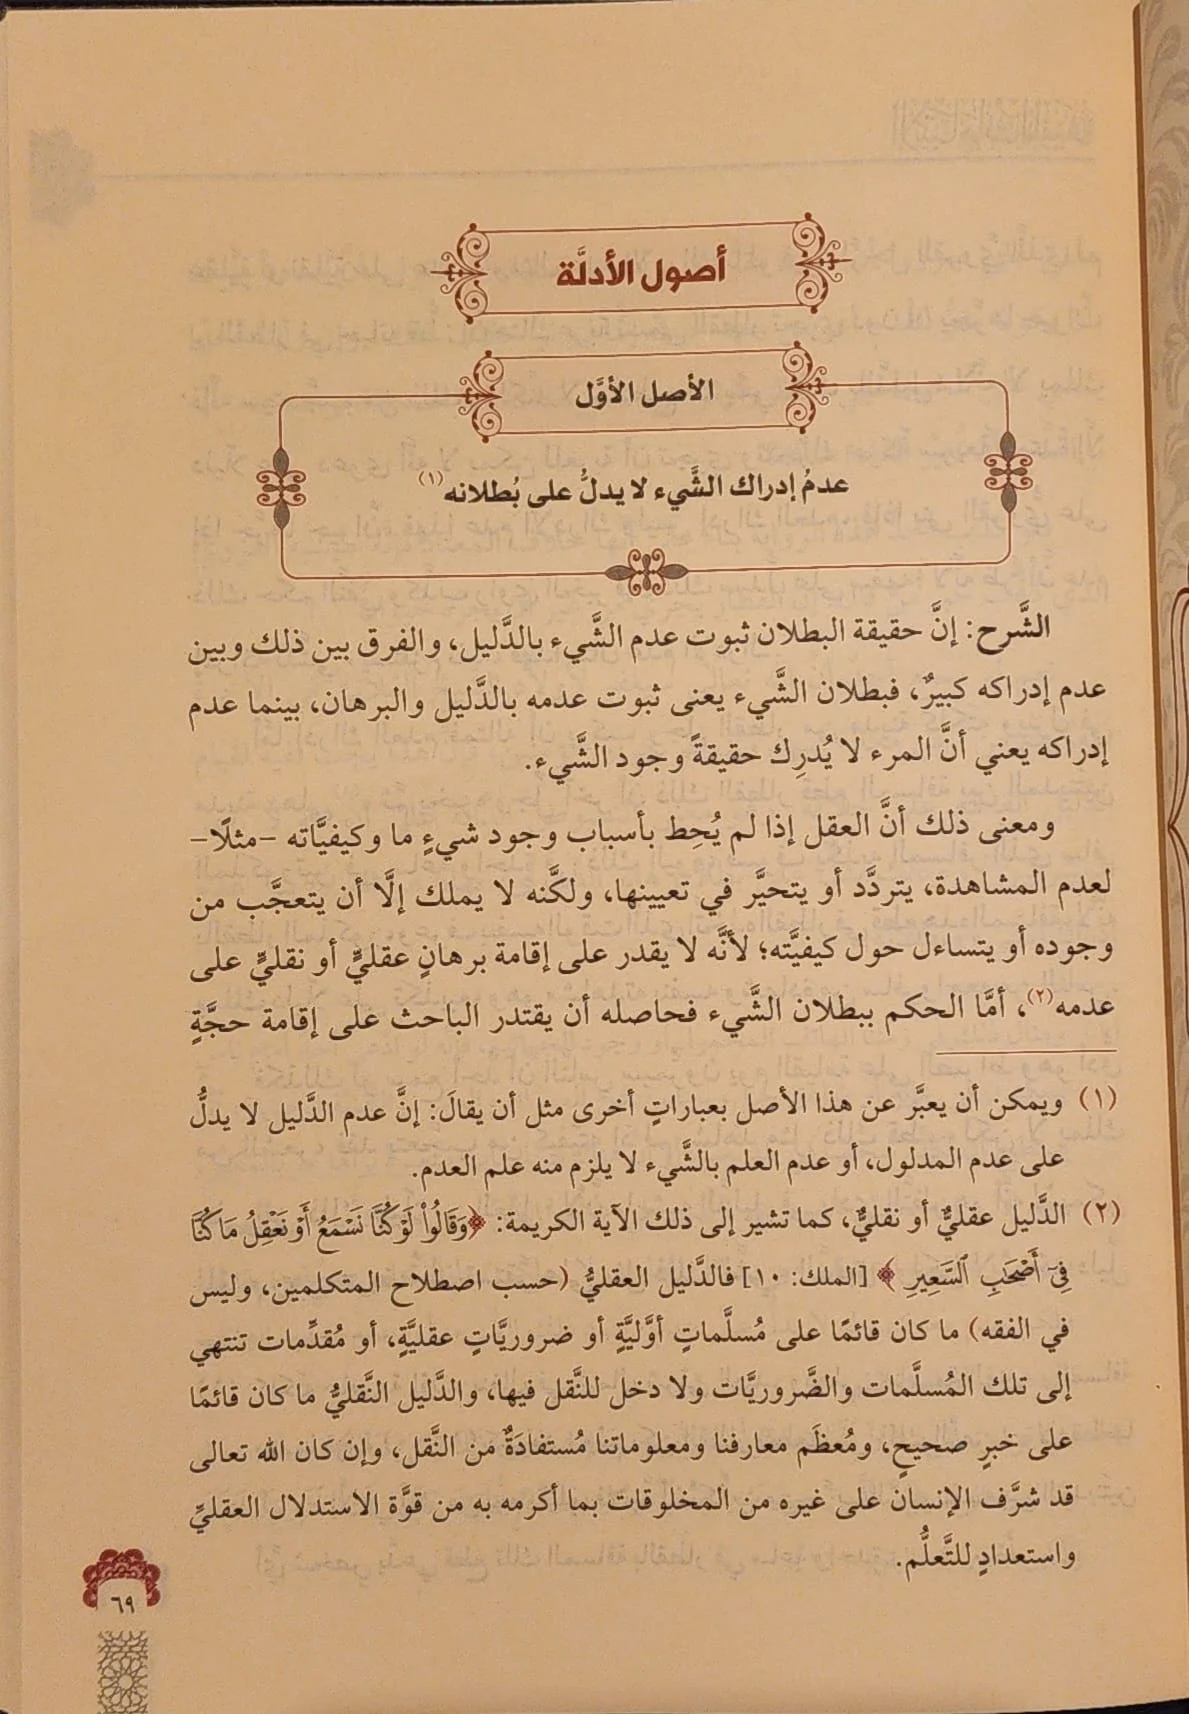 أصول الأدلَّة
الأصل الأوَّل
عدمُ إدراك الشَّيء لا يدلُّ على بُطلانه(١)
الشَّرح: إنَّ حقيقة البطلان ثبوت عدم الشَّيء بالدَّليل، والفرق بين ذلك وبين
عدم إدراكه كبيرٌ، فبطلان الشَّيء يعنى ثبوت عدمه بالدَّليل والبرهان، بينما عدم
إدراكه يعني أنَّ المرء لا يُدرِك حقيقةً وجود الشَّيء.
ومعنى ذلك أنَّ العقل إذا لم يُحِط بأسباب وجود شيءٍ ما وكيفيَّاته -مثلًا-
لعدم المشاهدة، يتردَّد أو يتحيَّر في تعيينها، ولكَّنه لا يملك إلَّا أن يتعجَّب من
وجوده أو يتساءل حول كيفيَّته؛ لأنَّه لا يقدر على إقامة برهانٍ عقليٍّ أو نقليٍّ على
عدمه(٢)، أمَّا الحكم ببطلان الشَّيء فحاصله أن يقتدر الباحث على إقامة حجَّةٍ
(١) ويمكن أن يعبَّر عن هذا الأصل بعباراتٍ أخرى مثل أن يقالَ: إنَّ عدم الدَّليل لا يدلُّ
على عدم المدلول، أو عدم العلم بالشَّيء لا يلزم منه علم العدم.
(٢) الدَّليل عقليٌّ أو نقليٌّ، كما تشير إلى ذلك الآية الكريمة: ﴿وَقَالُواْ لَوۡ كُنَّا نَسۡمَعُ أَوۡ نَعۡقِلُ مَا كُنَّا
فِيٓ أَصۡحَٰبِ ٱلسَّعِيرِ﴾ [الملك: ١٠] فالدَّليل العقليُّ (حسب اصطلاح المتكلمين، وليس
في الفقه) ما كان قائمًا على مُسلَّماتٍ أوَّليَّةٍ أو ضروريَّاتٍ عقليَّةٍ، أو مُقدِّمات تنتهي
إلى تلك المُسلَّمات والضَّروريَّات ولا دخل للنَّقل فيها، والدَّليل النَّقليُّ ما كان قائمًا
على خبرٍ صحيحٍ، ومُعظَم معارفنا ومعلوماتنا مُستفادَةٌ من النَّقل، وإن كان الله تعالى
قد شرَّف الإنسان على غيره من المخلوقات بما أكرمه به من قوَّة الاستدلال العقليِّ
واستعدادٍ للتَّعلُّم.
٦٩